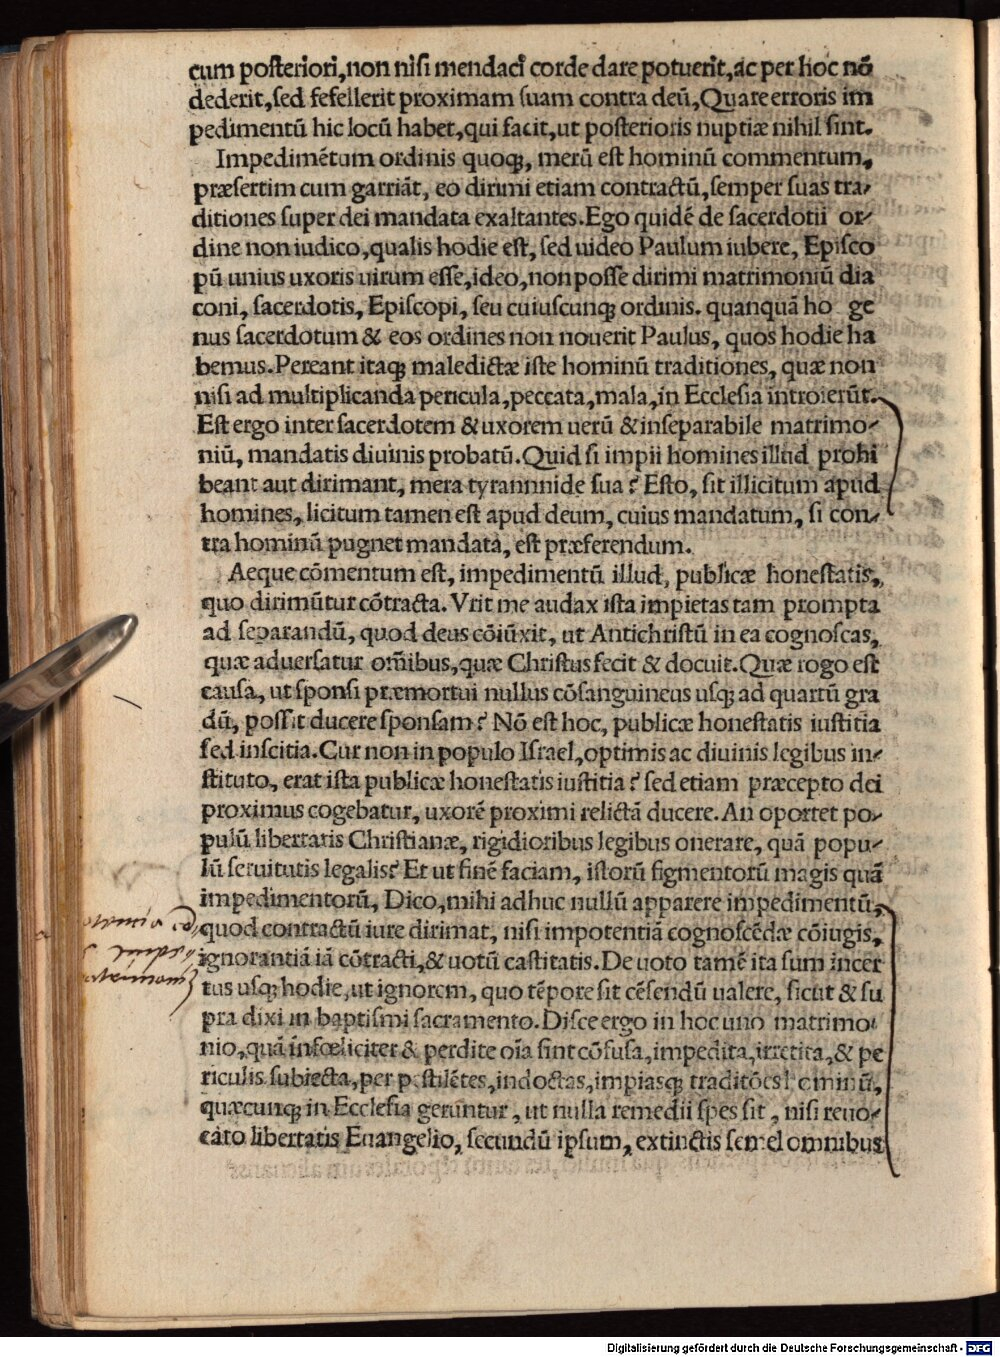 cum posteriori, non nisi mendaci corde dare potuerit, ac per hoc nō
dederit, sed fefellerit proximam suam contra deū, Quare erroris im
pedimentū hic locū habet, qui facit, ut posterioris nuptiæ nihil sint.
Impedimētum ordinis quoqꝫ, merū est hominū commentum,
præsertim cum garriāt, eo dirimi etiam contractū, semper suas tra-
ditiones super dei mandata exaltantes. Ego quidē de sacerdotii or-
dine non iudico, qualis hodie est, sed uideo Paulum iubere, Episco
pū unius uxoris uirum esse, ideo, non posse dirimi matrimoniū dia
coni, sacerdotis, Episcopi, seu cuiuscunqꝫ ordinis. quanquā ho ge
nus sacerdotum & eos ordines non nouerit Paulus, quos hodie ha
bemus. Pereant itaqꝫ maledictæ iste hominū traditiones, quæ non
nisi ad multiplicanda pericula, peccata, mala, in Ecclesia introierūt.
Est ergo inter sacerdotem & uxorem uerū & inseparabile matrimo-
niū, mandatis diuinis probatū. Quid si impii homines illud prohi
beant aut dirimant, mera tyrannnide sua? Esto, sit illicitum apud
homines, licitum tamen est apud deum, cuius mandatum, si con-
tra hominū pugnet mandata, est præferendum.
Aeque cōmentum est, impedimentū illud, publicæ honestatis,
quo dirimūtur cōtracta. Vrit me audax ista impietas tam prompta
ad separandū, quod deus cōiūxit, ut Antichristū in ea cognoscas,
quæ aduersatur om̄ibus, quæ Christus fecit & docuit. Quæ rogo est
causa, ut sponsi præmortui nullus cōsanguineus usqꝫ ad quartū gra
dū, possit ducere sponsam? Nō est hoc, publicæ honestatis iustitia
sed inscitia. Cur non in populo Israel, optimis ac diuinis legibus in-
stituto, erat ista publicæ honestatis iustitia? sed etiam præcepto dei
proximus cogebatur, uxorē proximi relictā ducere. An oportet po-
pulū libertatis Christianæ, rigidioribus legibus onerare, quā popu-
lū seruitutis legalis? Et ut finē faciam, istorū figmentorū magis quā
impedimentorū, Dico, mihi adhuc nullū apparere impedimentū,
quod contractū iure dirimat, nisi impotentiā cognoscēdæ cōiugis,
ignorantiā iā cōtracti, & uotū castitatis. De uoto tamē ita sum incer
tus usqꝫ hodie, ut ignorem, quo tēpore sit cēsendū ualere, sicut & su
pra dixi in baptismi sacramento. Disce ergo in hoc uno matrimo-
nio, quā infœliciter & perdite oīa sint cōfusa, impedita, irretita, & pe
riculis subiecta, per pestilētes, indoctas, impiasqꝫ traditōes hominū,
quæcunqꝫ in Ecclesia geruntur, ut nulla remedii spes sit, nisi reuo-
cato libertatis Euangelio, secundū ipsum, extinctis semel omnibus
Digitalisierung gefördert durch die Deutsche Forschungsgemeinschaft - DFG